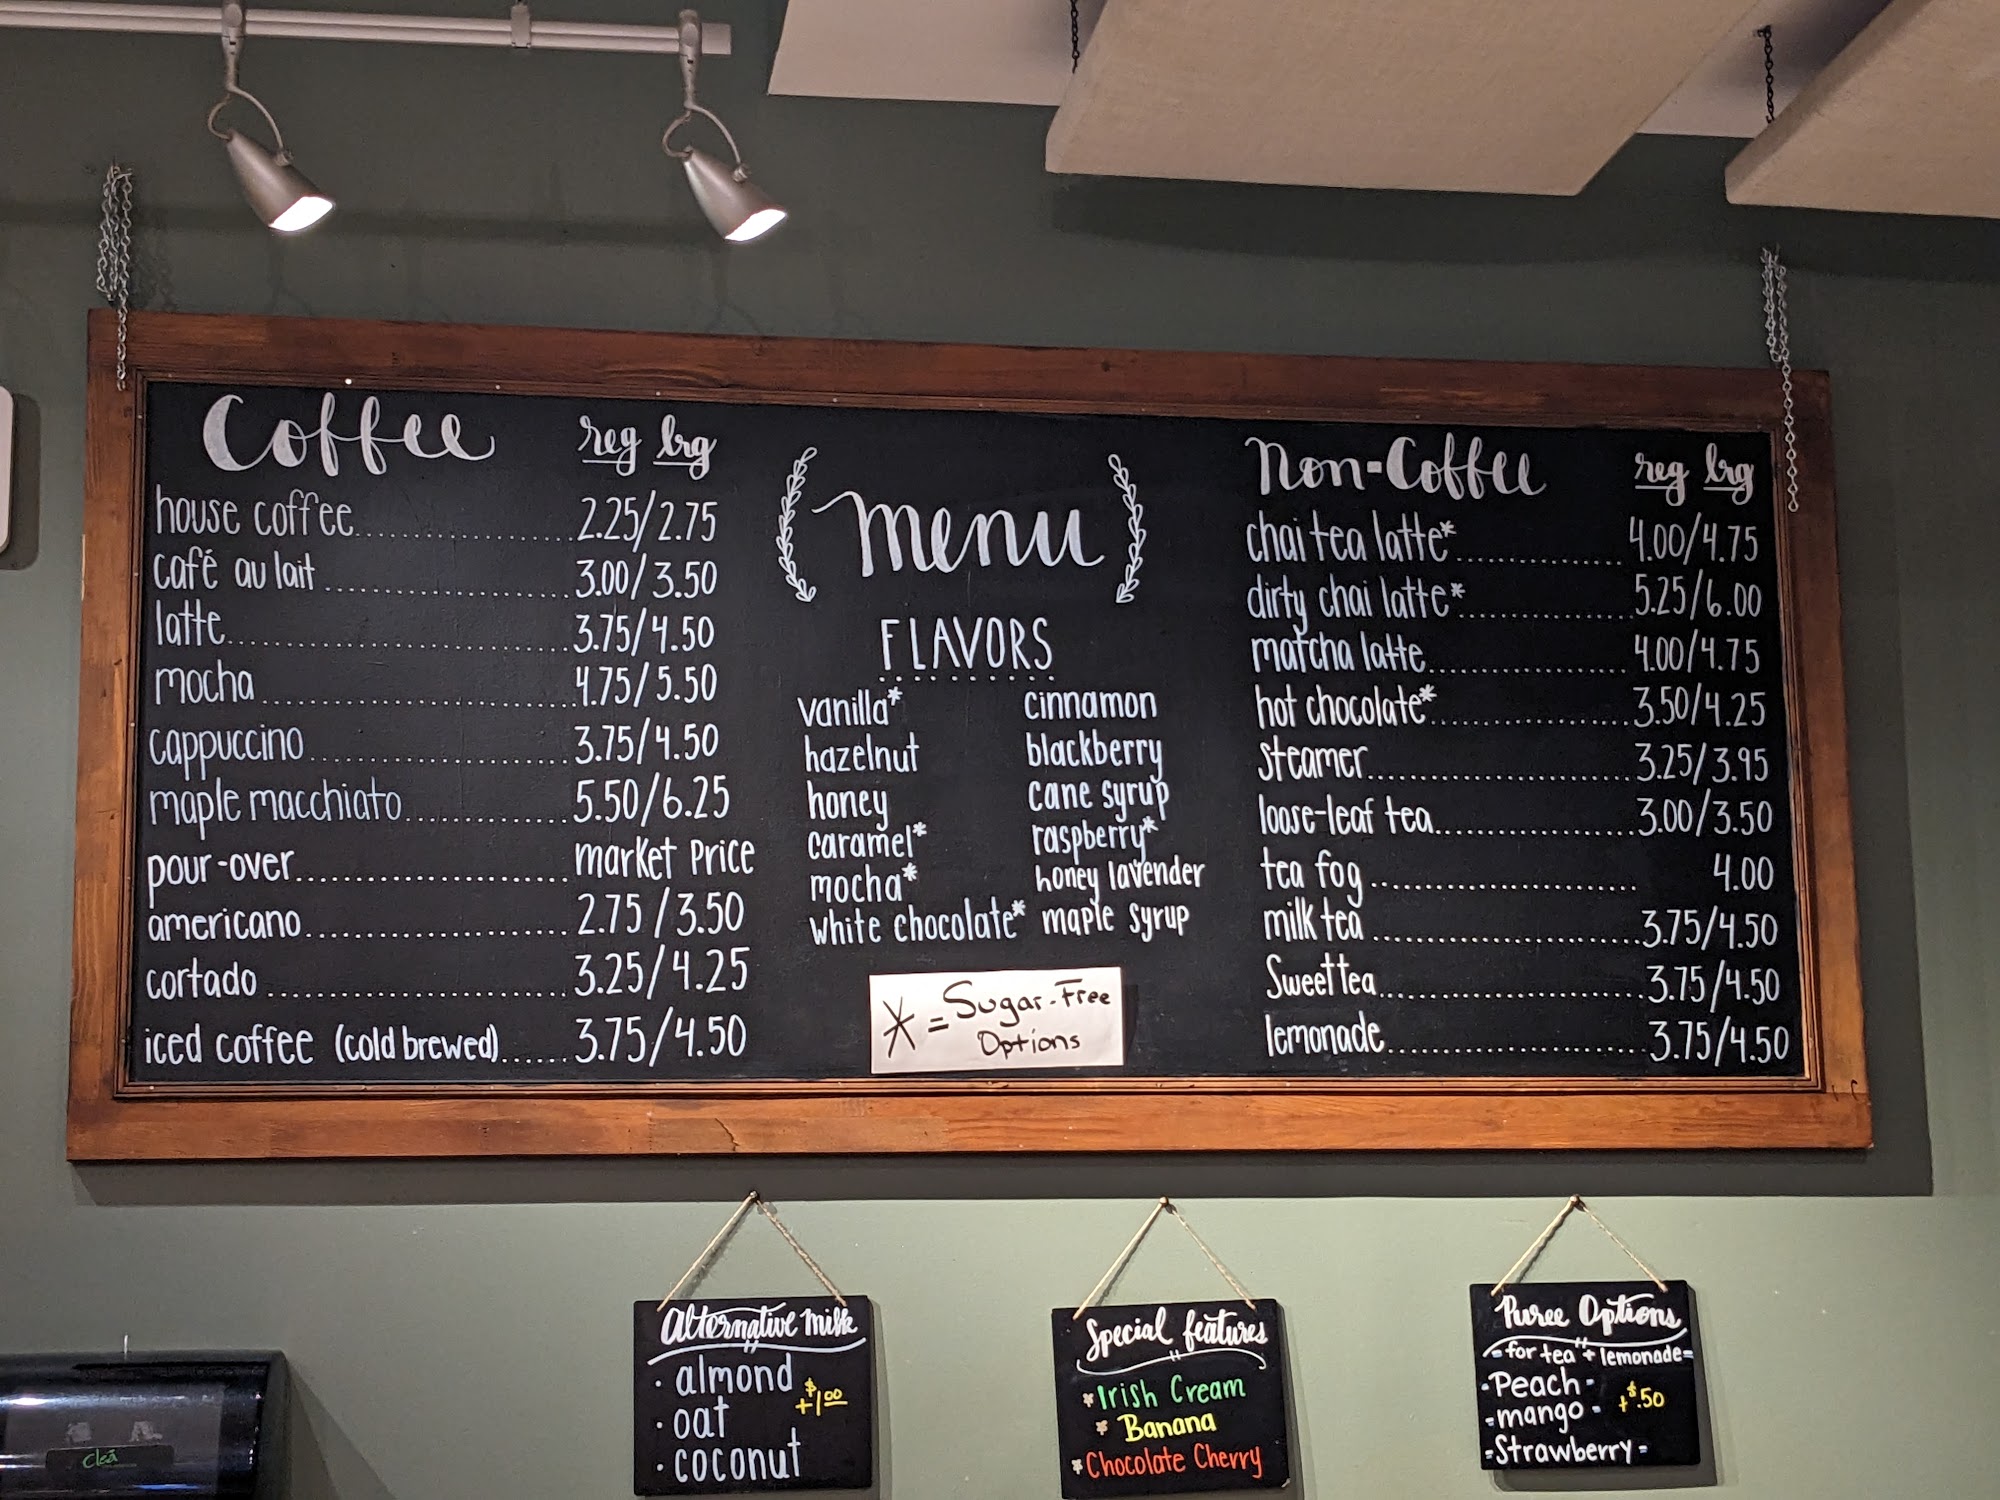 Coffee reg lrg
house coffee 2.25/2.75
café au lait 3.00/3.50
latte 3.75/4.50
mocha 4.75/5.50
cappuccino 3.75/4.50
maple macchiato 5.50/6.25
pour-over market price
americano 2.75/3.50
cortado 3.25/4.25
iced coffee (cold brewed) 3.75/4.50
menu
FLAVORS
vanilla*
hazelnut
honey
caramel*
mocha*
white chocolate*
cinnamon
blackberry
cane syrup
raspberry*
honey lavender
maple syrup
* = Sugar-Free
Options
Non-Coffee reg lrg
chai tea latte* 4.00/4.75
dirty chai latte* 5.25/6.00
matcha latte 4.00/4.75
hot chocolate* 3.50/4.25
steamer 3.25/3.95
loose-leaf tea 3.00/3.50
tea fog 4.00
milk tea 3.75/4.50
Sweet tea 3.75/4.50
lemonade 3.75/4.50
Alternative Milk
· almond
· oat
· coconut
+$1.00
Special features
* Irish Cream
* Banana
* Chocolate Cherry
Puree Options
-for tea + lemonade-
-Peach-
-mango-
-Strawberry-
+$.50
cleá